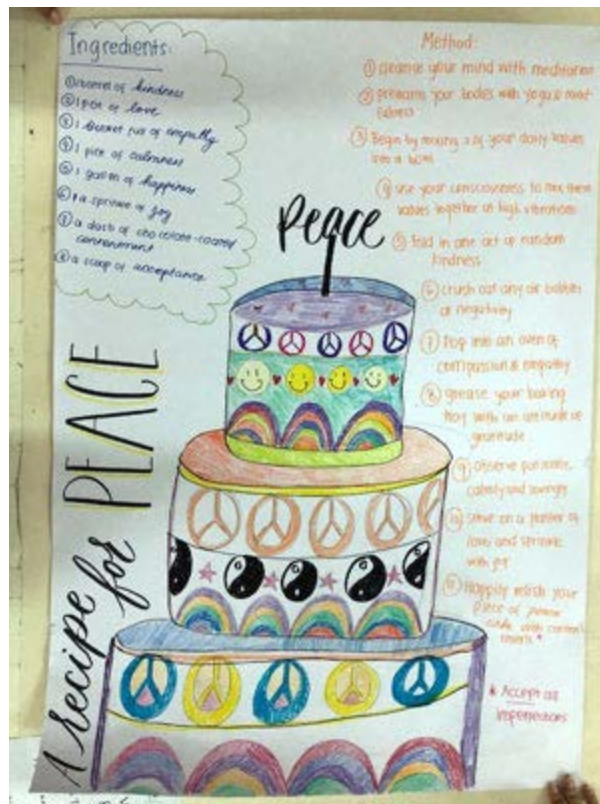 A recipe for PEACE
Ingredients:
① of kindness
② 1 pot of love
③ 1 bucket full of empathy
④ 1 pick of calmness
⑤ 1 gallon of happiness
⑥ a sprinkle of joy
⑦ a dash of chocolate-coated
contentment
⑧ a scoop of acceptance
Peace
Method:
① cleanse your mind with meditation
② your bodies with yoga &
fulness
③ Begin by mixing 3 of your daily values
into a bowl
④ use your consciousness to mix these
values together at high vibrations
⑤ Fold in one act of random
kindness
⑥ crush out any air bubbles
of negativity
⑦ Pop into an oven of
compassion & empathy
⑧ grease your baking
tray with an attitude of
gratitude
⑨ observe patiently,
calmly and lovingly
⑩ Serve on a platter of
love and sprinkle
with joy
⑪ Happily relish your
piece of peace
with
*
* Accept all
imperfections